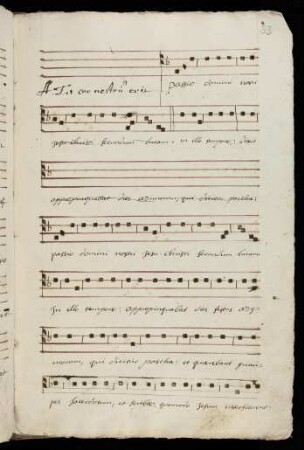 passio domini nostri
Jesu christi secundum lucam, in illo tempore, dies
appropinquabat dies azimorum, qui dicitur pascha,
passio domini nostri Jesu christi secundum lucam
In illo tempore appropinquabat dies festus azy-
morum, qui dicitur pascha, et querebant princi
pes sacerdotum, et scribae, quomodo Jesum interficerent